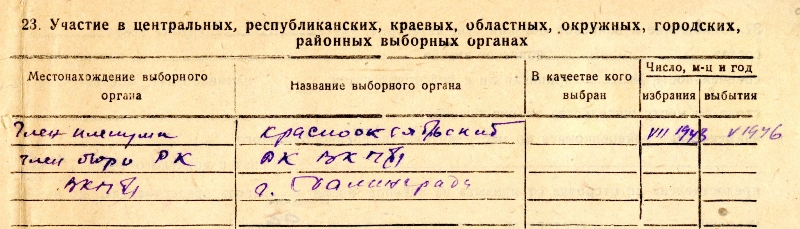 23. Участие в центральных, республиканских, краевых, областных, окружных, городских,
районных выборных органах
Местонахождение выборного
органа
Название выборного органа
В качестве кого
выбран
Число, м-ц и год
избрания
выбытия
Член пленума Краснооктябрьский VII 1943 V 1946
член бюро РК РК ВКП(б)
ВКП(б) г. Сталинграда